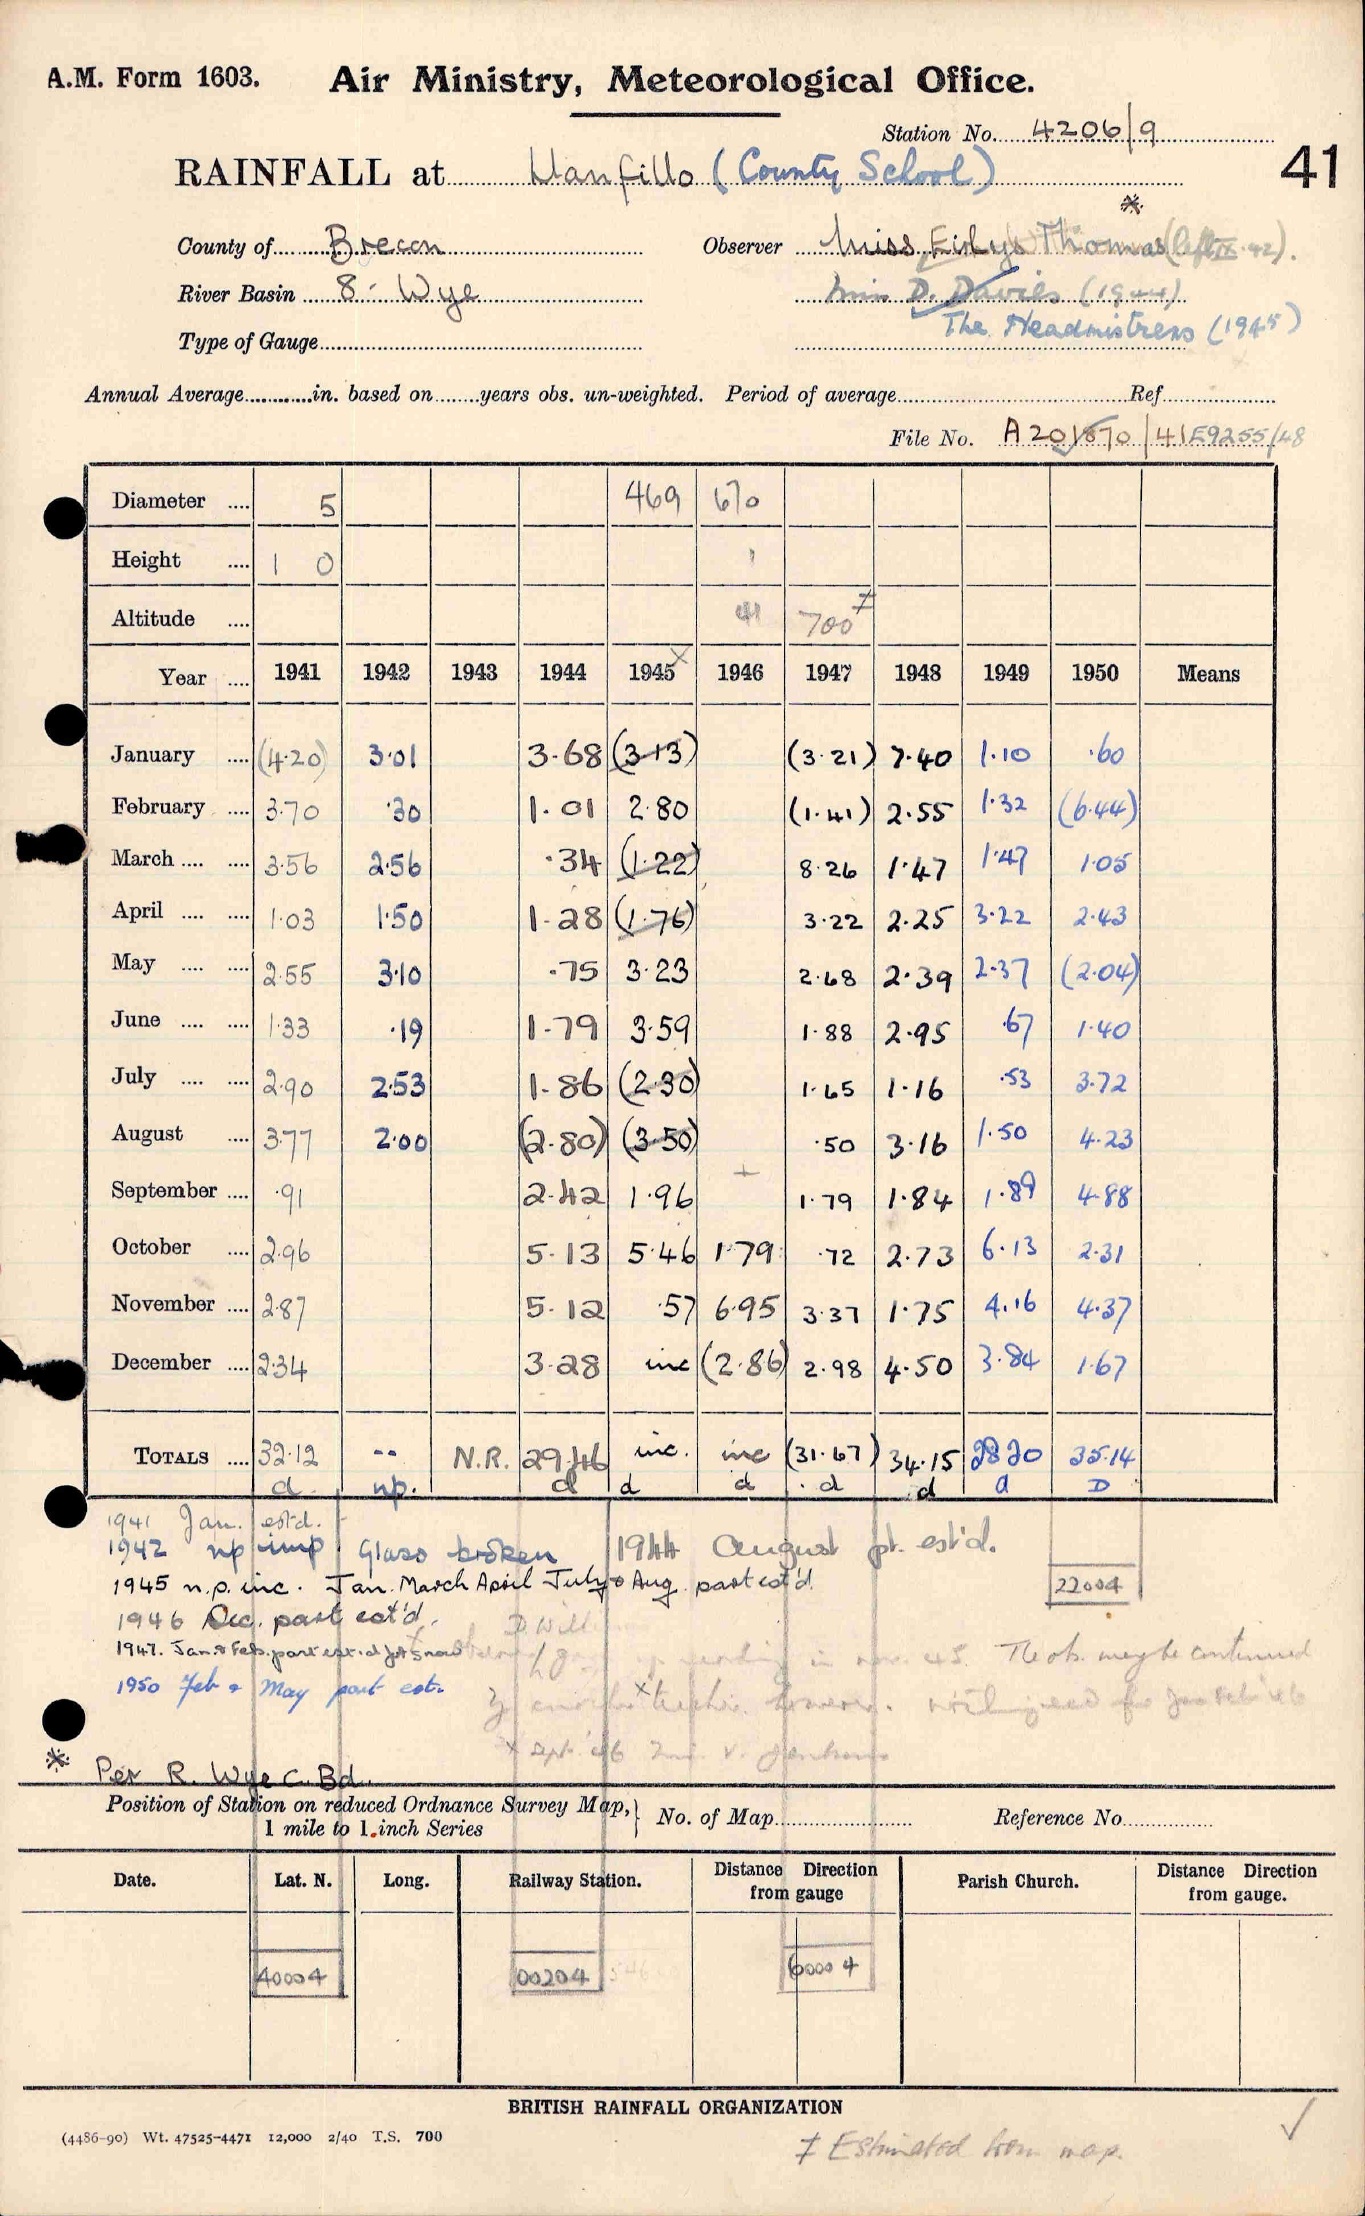 A.M. Form 1603. Air Ministry, Meteorological Office.
Station No. 4206/9
RAINFALL at Llanfillo (County School) 41
*
County of Brecon Observer Miss Eirlys Thomas (left IX.42).
River Basin 8. Wye Miss D. Davies (1944)
The Headmistress (1945)
Type of Gauge
Annual Average in. based on years obs. un-weighted. Period of average Ref
File No. A201870/41 E9255/48
Diameter .... 5 469 670
Height .... 1 0
Altitude .... 41 700 ‡
Year .... 1941 1942 1943 1944 1945 x 1946 1947 1948 1949 1950 Means
January .... (4.20) 3.01 3.68 (3.13) (3.21) 7.40 1.10 .60
February .... 3.70 .30 1.01 2.80 (1.41) 2.55 1.32 (6.44)
March .... .... 3.56 2.56 .34 (1.22) 8.26 1.47 1.47 1.05
April .... .... 1.03 1.50 1.28 (1.76) 3.22 2.25 3.22 2.43
May .... .... 2.55 3.10 .75 3.23 2.68 2.39 2.37 (2.04)
June .... .... 1.33 .19 1.79 3.59 1.88 2.95 .67 1.40
July .... .... 2.90 2.53 1.86 (2.30) 1.65 1.16 .53 3.72
August .... 3.77 2.00 (2.80) (3.50) .50 3.16 1.50 4.23
September .... .91 2.42 1.96 + 1.79 1.84 1.89 4.88
October .... 2.96 5.13 5.46 1.79 .72 2.73 6.13 2.31
November .... 2.87 5.12 .57 6.95 3.37 1.75 4.16 4.37
December .... 2.34 3.28 inc (2.86) 2.98 4.50 3.84 1.67
TOTALS .... 32.12 -- N.R. 29.46 inc. inc (31.67) 34.15 28.20 35.14
d. np. d d d d d d D
1941 Jan. est'd.
1942 np imp. Glass broken 1944 August pt. est'd.
1945 n.p. inc. Jan. March April July & Aug. part est'd. 22004
1946 Dec. part est'd.
1947. Jan. & Feb. part est.d for snow
in nov. 45. The obs. may be continued
1950 Feb & May part est.
by another teacher however. for Jan Feb 46
x Sept. '46 V. Jenkins
* Per R. Wye C. Bd.
Position of Station on reduced Ordnance Survey Map, } No. of Map Reference No.
1 mile to 1 inch Series
Date. Lat. N. Long. Railway Station. Distance Direction from gauge Parish Church. Distance Direction from gauge.
40004 00204 60004
BRITISH RAINFALL ORGANIZATION
(4486-90) Wt. 47525-4471 12,000 2/40 T.S. 700
‡ Estimated from map.